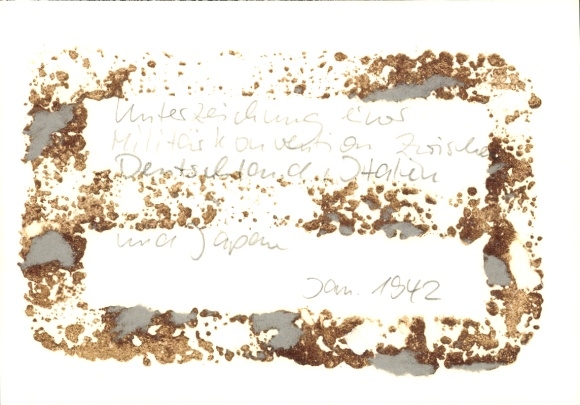 Unterzeichnung einer
Militärkonvention zwischen
Deutschland, Italien
und Japan
Jan. 1942